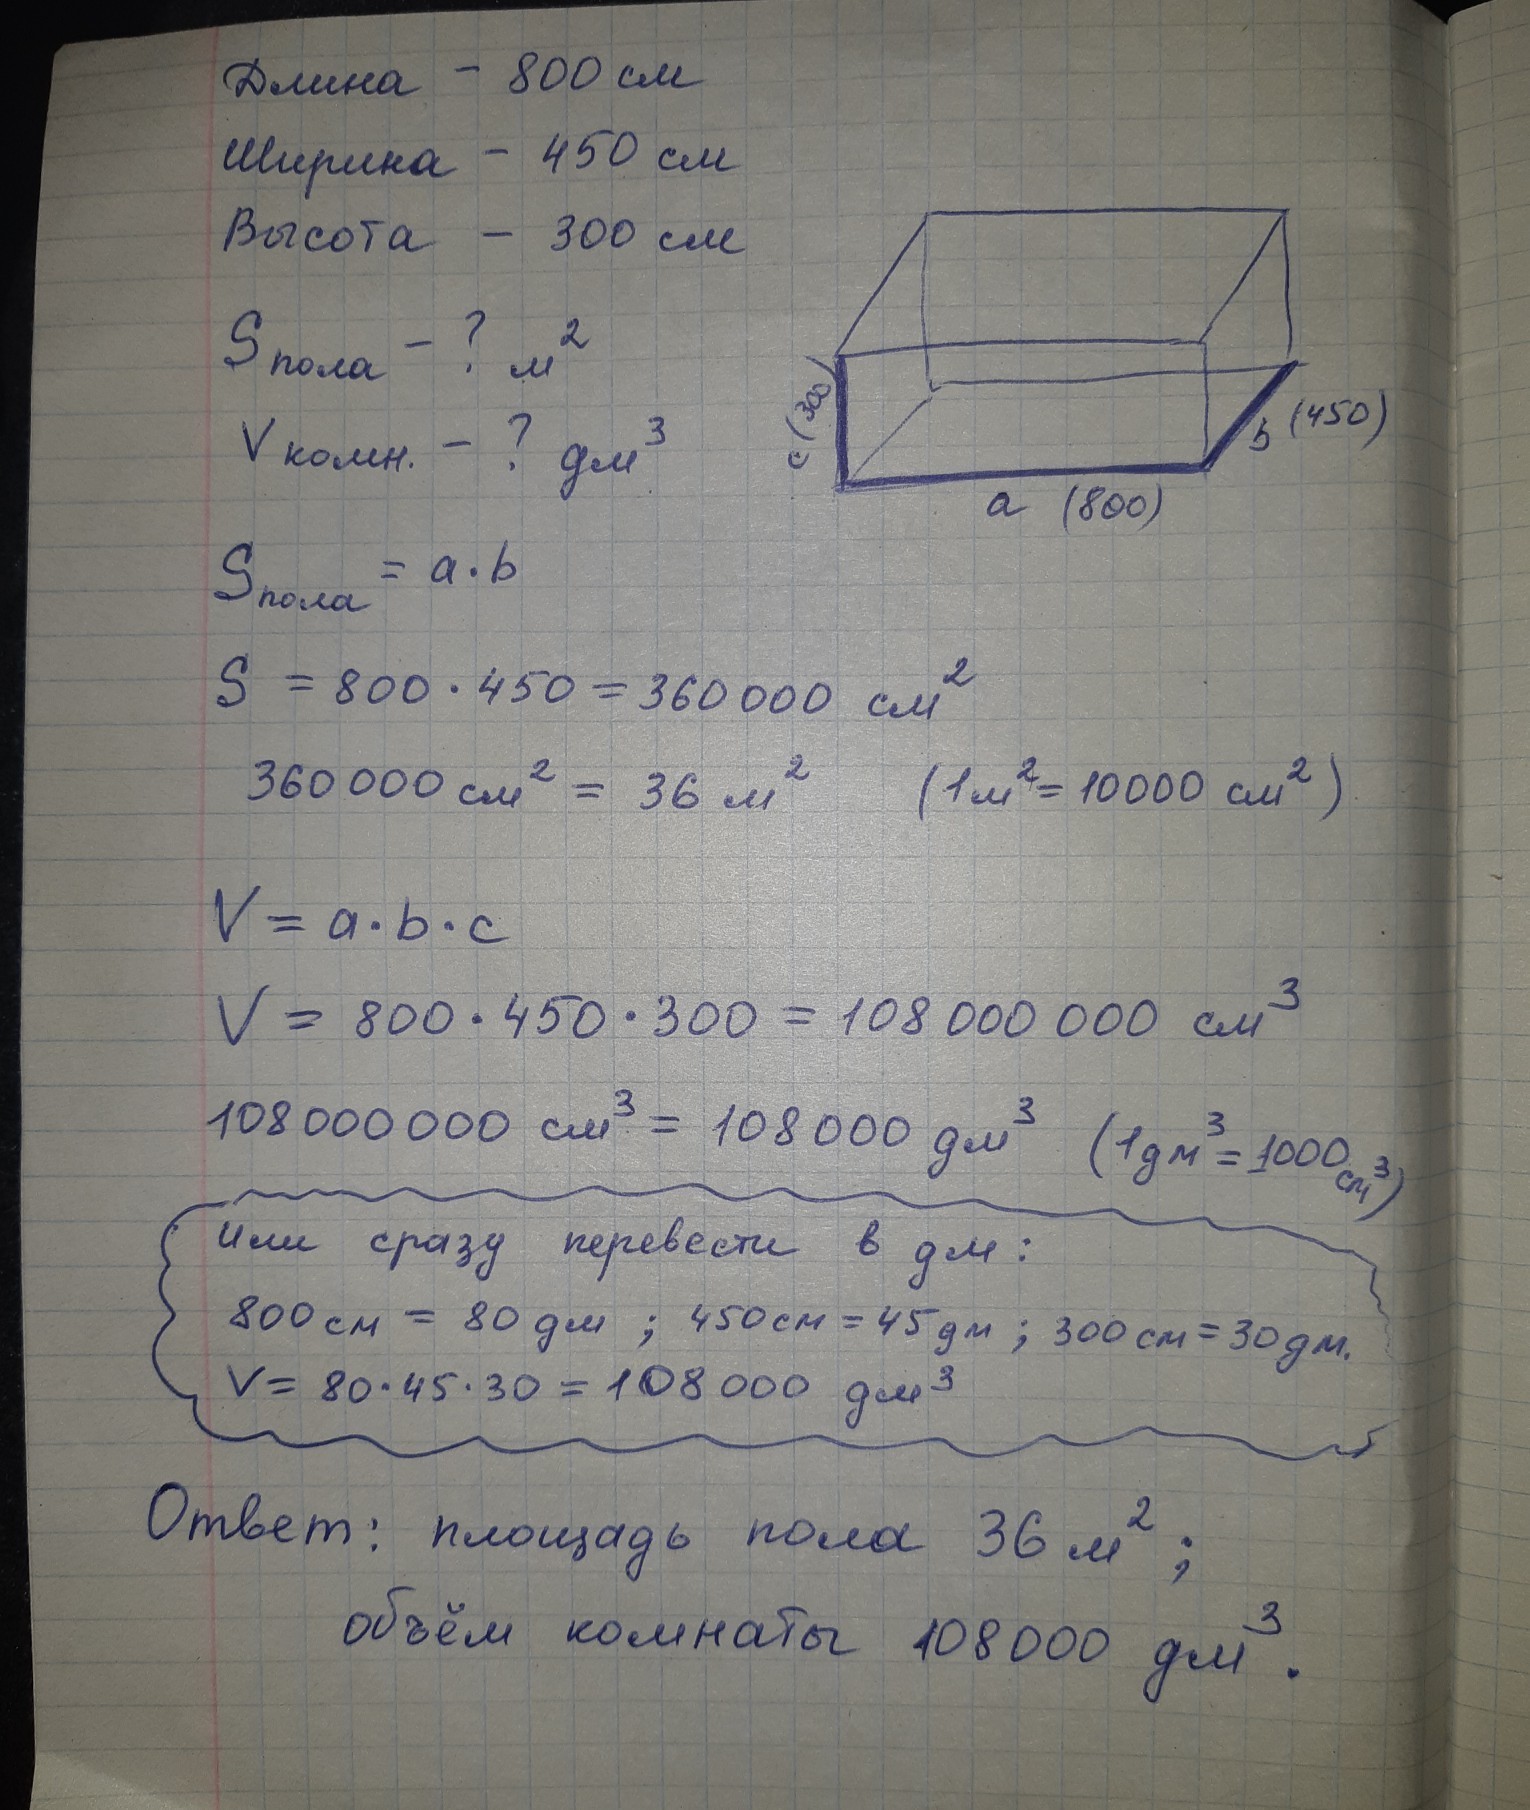 Длина - 800 см
Ширина - 450 см
Высота - 300 см
Sпола - ? м²
Vкомн. - ? дм³
c (300)
b (450)
a (800)
Sпола = a·b
S = 800·450 = 360 000 см²
360 000 см² = 36 м² (1м² = 10000 см²)
V = a·b·c
V = 800·450·300 = 108 000 000 см³
108 000 000 см³ = 108 000 дм³ (1дм³ = 1000 см³)
или сразу перевести в дм:
800 см = 80 дм ; 450 см = 45 дм ; 300 см = 30 дм.
V = 80·45·30 = 108 000 дм³
Ответ: площадь пола 36 м² ;
объём комнаты 108000 дм³.